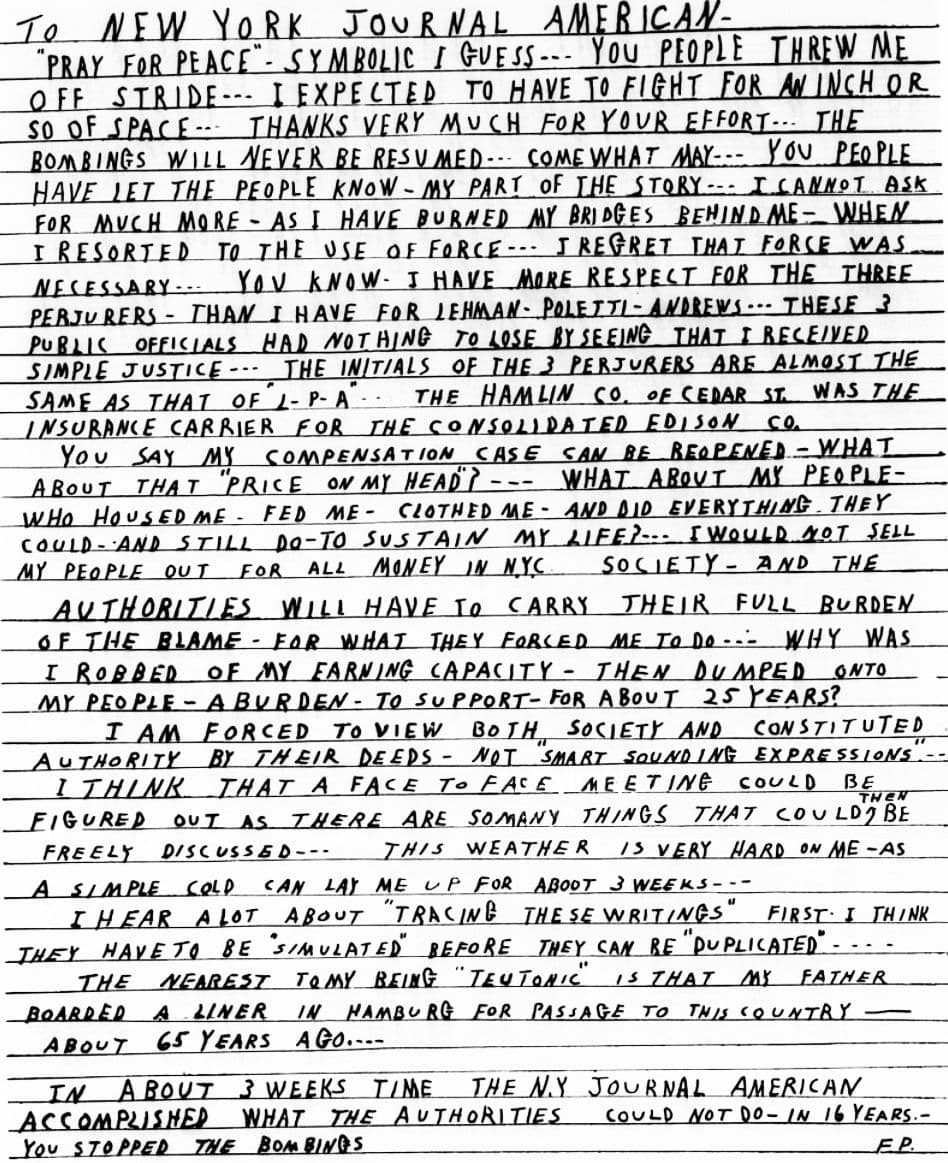 TO NEW YORK JOURNAL AMERICAN-
"PRAY FOR PEACE"- SYMBOLIC I GUESS--- YOU PEOPLE THREW ME
OFF STRIDE--- I EXPECTED TO HAVE TO FIGHT FOR AN INCH OR
SO OF SPACE--- THANKS VERY MUCH FOR YOUR EFFORT--- THE
BOMBINGS WILL NEVER BE RESUMED--- COME WHAT MAY--- YOU PEOPLE
HAVE LET THE PEOPLE KNOW - MY PART OF THE STORY--- I CANNOT ASK
FOR MUCH MORE - AS I HAVE BURNED MY BRIDGES BEHIND ME- WHEN
I RESORTED TO THE USE OF FORCE--- I REGRET THAT FORCE WAS
NECESSARY--- YOU KNOW- I HAVE MORE RESPECT FOR THE THREE
PERJURERS - THAN I HAVE FOR LEHMAN- POLETTI- ANDREWS--- THESE 3
PUBLIC OFFICIALS HAD NOTHING TO LOSE BY SEEING THAT I RECEIVED
SIMPLE JUSTICE--- THE INITIALS OF THE 3 PERJURERS ARE ALMOST THE
SAME AS THAT OF "L-P-A"-- THE HAMLIN CO. OF CEDAR ST. WAS THE
INSURANCE CARRIER FOR THE CONSOLIDATED EDISON CO.
YOU SAY MY COMPENSATION CASE CAN BE REOPENED - WHAT
ABOUT THAT "PRICE ON MY HEAD"? --- WHAT ABOUT MY PEOPLE-
WHO HOUSED ME - FED ME - CLOTHED ME - AND DID EVERYTHING THEY
COULD--AND STILL DO-TO SUSTAIN MY LIFE?--- I WOULD NOT SELL
MY PEOPLE OUT FOR ALL MONEY IN NYC SOCIETY - AND THE
AUTHORITIES WILL HAVE TO CARRY THEIR FULL BURDEN
OF THE BLAME - FOR WHAT THEY FORCED ME TO DO--- WHY WAS
I ROBBED OF MY EARNING CAPACITY - THEN DUMPED ONTO
MY PEOPLE - A BURDEN - TO SUPPORT- FOR ABOUT 25 YEARS?
I AM FORCED TO VIEW BOTH SOCIETY AND CONSTITUTED
AUTHORITY BY THEIR DEEDS - NOT "SMART SOUNDING EXPRESSIONS"---
I THINK THAT A FACE TO FACE MEETING COULD BE
FIGURED OUT AS THERE ARE SOMANY THINGS THAT COULD THEN BE
FREELY DISCUSSED--- THIS WEATHER IS VERY HARD ON ME -AS
A SIMPLE COLD CAN LAY ME UP FOR ABOOT 3 WEEKS---
I HEAR A LOT ABOUT "TRACING THESE WRITINGS" FIRST- I THINK
THEY HAVE TO BE "SIMULATED" BEFORE THEY CAN BE "DUPLICATED"----
THE NEAREST TO MY BEING "TEUTONIC" IS THAT MY FATHER
BOARDED A LINER IN HAMBURG FOR PASSAGE TO THIS COUNTRY —
ABOUT 65 YEARS AGO.---
IN ABOUT 3 WEEKS TIME THE N.Y JOURNAL AMERICAN
ACCOMPLISHED WHAT THE AUTHORITIES COULD NOT DO - IN 16 YEARS.-
YOU STOPPED THE BOMBINGS F.P.